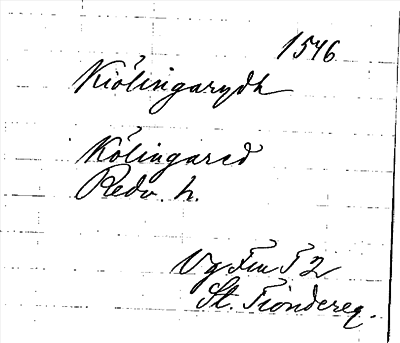 1546
Kiölingarydh
Kölingared
Redv. h.
Vg Fru 5 2
St. Tiondereg.